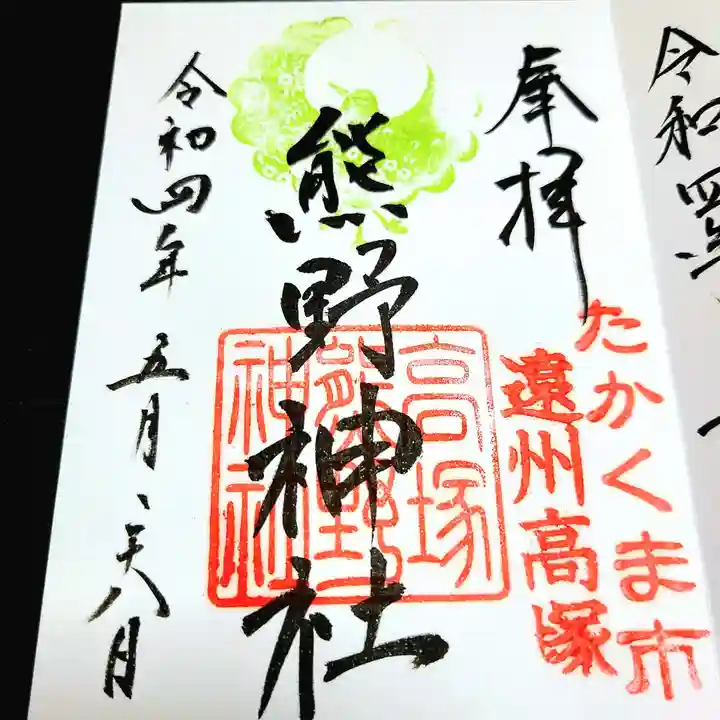 令和
奉拝
たかくま市
遠州高塚
熊野神社
高塚
熊野
神社
令和四年 五月二十八日